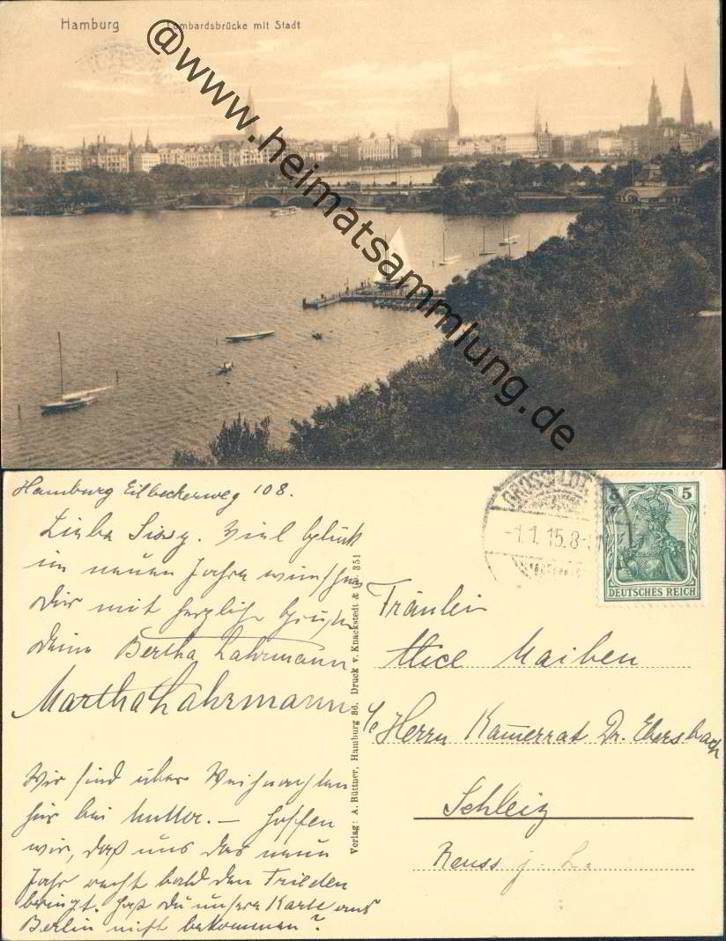 Hamburg Lombardsbrücke mit Stadt
@www.heimatsammlung.de
Hamburg Eilbeckerweg 108.
Liebe Sissy. Viel Glück
im neuen Jahre wünschen
Dir mit herzlichen Grüßen
Deine Bertha Lahrmann
Martha Lahrmann
Wir sind über Weihnachten
hier bei Mutter. – Hoffen
wir, daß uns das neue
Jahr recht bald den Frieden
bringt. Hast Du unsere Karte aus
Berlin nicht bekommen?
Verlag: A. Büttner, Hamburg 36. Druck v. Knackstedt & 351
-1.1.15.8-
5 5
DEUTSCHES REICH
Fräulein
Alice Maiben
c/o Herrn Kammerrat Dr. Ebersbach
Schleiz
Reuss j. L.